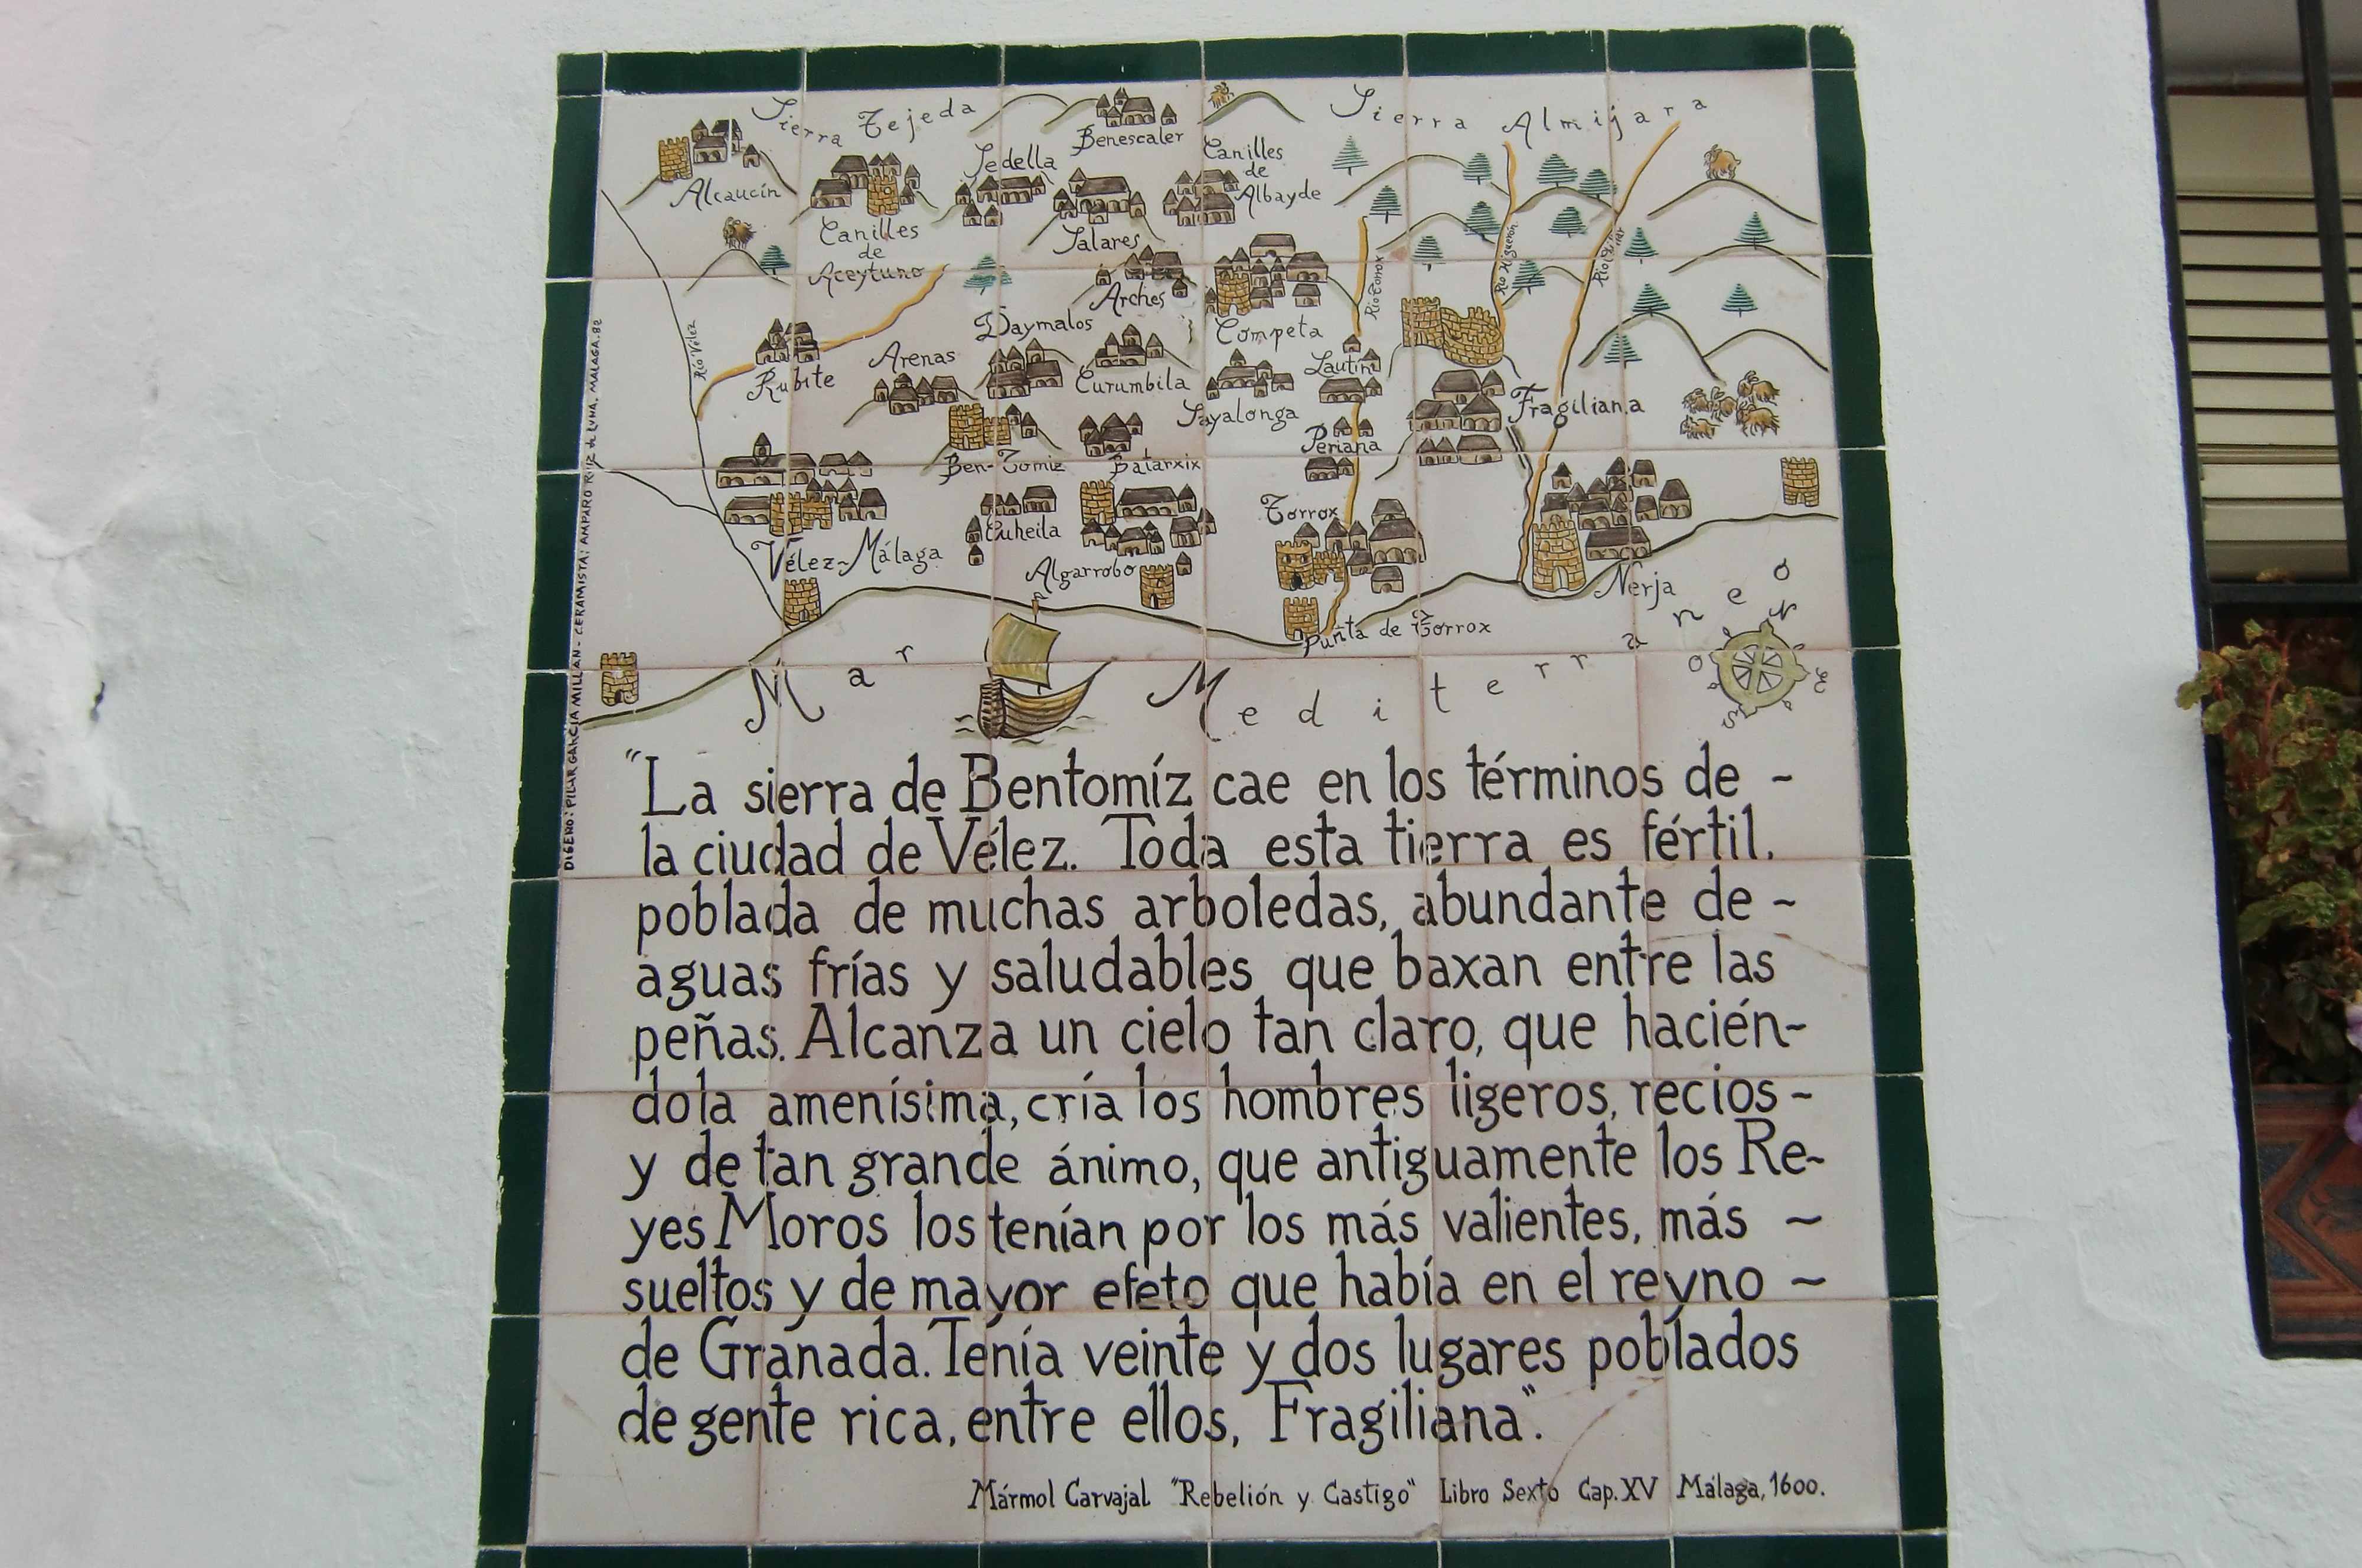 Sierra Tejeda
Sierra Almijara
Benescaler
Alcaucín
Sedella
Canilles
de
Albayde
Canilles
de
Aceytuno
Salares
Arches
Río Torrox
Río Higuerón
Río
Río Vélez
Daymalos
Competa
Rubite
Arenas
Curumbila
Lautin
Sayalonga
Fragiliana
Periana
Ben-Tomiz
Batarxix
Torrox
Cuheila
Vélez-Málaga
Algarrobo
Nerja
Punta de Torrox
Mar Mediterraneo
N
O
E
S
DISEÑO: PILAR GARCÍA MILLÁN - CERAMISTA: AMPARO RUIZ de LUNA. MÁLAGA. 82
"La sierra de Bentomíz cae en los términos de -
la ciudad de Vélez. Toda esta tierra es fértil.
poblada de muchas arboledas, abundante de -
aguas frías y saludables que baxan entre las
peñas. Alcanza un cielo tan claro, que hacién-
dola amenísima, cría los hombres ligeros, recios -
y de tan grande ánimo, que antiguamente los Re-
yes Moros los tenían por los más valientes, más -
sueltos y de mayor efeto que había en el reyno -
de Granada. Tenía veinte y dos lugares poblados
de gente rica, entre ellos, Fragiliana".
Mármol Carvajal "Rebelión y Castigo" Libro Sexto Cap. XV Málaga, 1600.